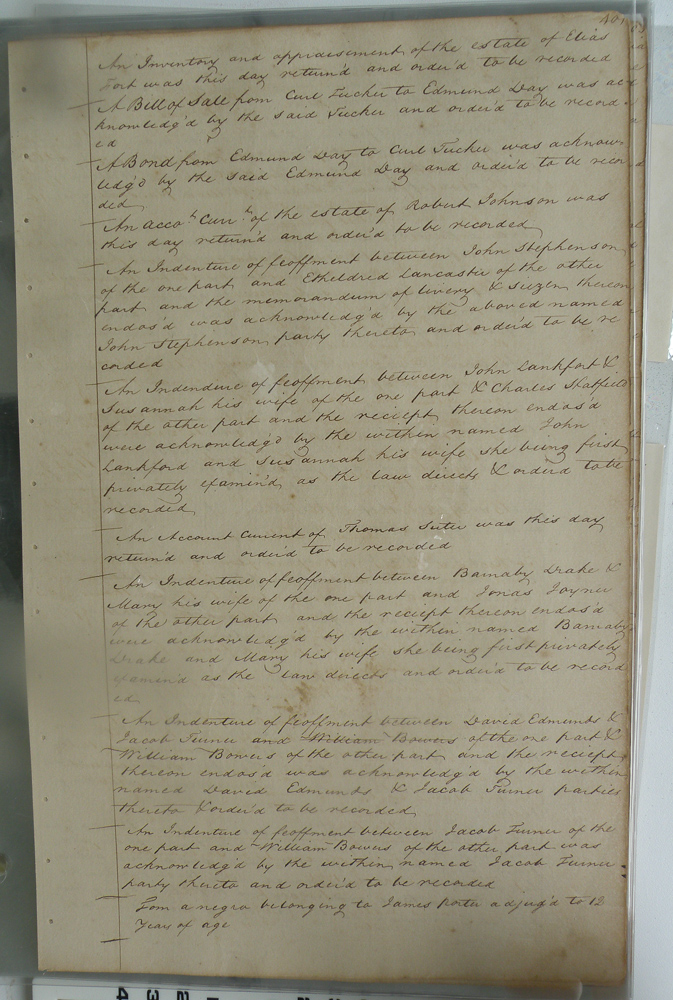 401
An Inventory and appraisement of the estate of Elias
Fort was this day return'd and order'd to be recorded
A Bill of Sale from Curl Tucker to Edmund Day was ac
knowledg'd by the said Tucker and order'd to be record
ed
A Bond from Edmund Day to Curl Tucker was acknow
ledg'd by the said Edmund Day and order'd to be recor
ded
An acco.t Curr.t of the estate of Robert Johnson was
this day return'd and order'd to be recorded
An Indenture of feoffment between John Stephenson
of the one part and Etheldred Lancaster of the other
part and the memorandum of livery & seizen thereon
endos'd was acknowledg'd by the aboved named
John Stephenson party thereto and order'd to be re
corded
An Indendure of feoffment between John Lankfort &
Susannah his wife of the one part & Charles
of the other part and the reciept thereon endos'd
were acknowledg'd by the within named John
Lankford and Susannah his wife she being first
privately examin'd as the law directs & order'd to be
recorded
An Account Current of Thomas Suter was this day
return'd and order'd to be recorded
An Indenture of feoffment between Barnaby Drake &
Mary his wife of the one part and Jonas Joyner
of the other part and the reciept thereon endos'd
were acknowledg'd by the within named Barnaby
Drake and Mary his wife she being first privately
examin'd as the law directs and order'd to be record
ed
An Indenture of feoffment between David Edmunds &
Jacob Turner and William Bowers of the one part &
William Bowers of the other part and the reciept
thereon endos'd was acknowledg'd by the within
named David Edmunds & Jacob Turner parties
thereto & order'd to be recorded
An Indenture of feoffment between Jacob Turner of the
one part and William Bowers of the other part was
acknowledg'd by the within named Jacob Turner
party thereto and order'd to be recorded
Tom a negro belonging to James Porter adjug'd to 12
Years of age